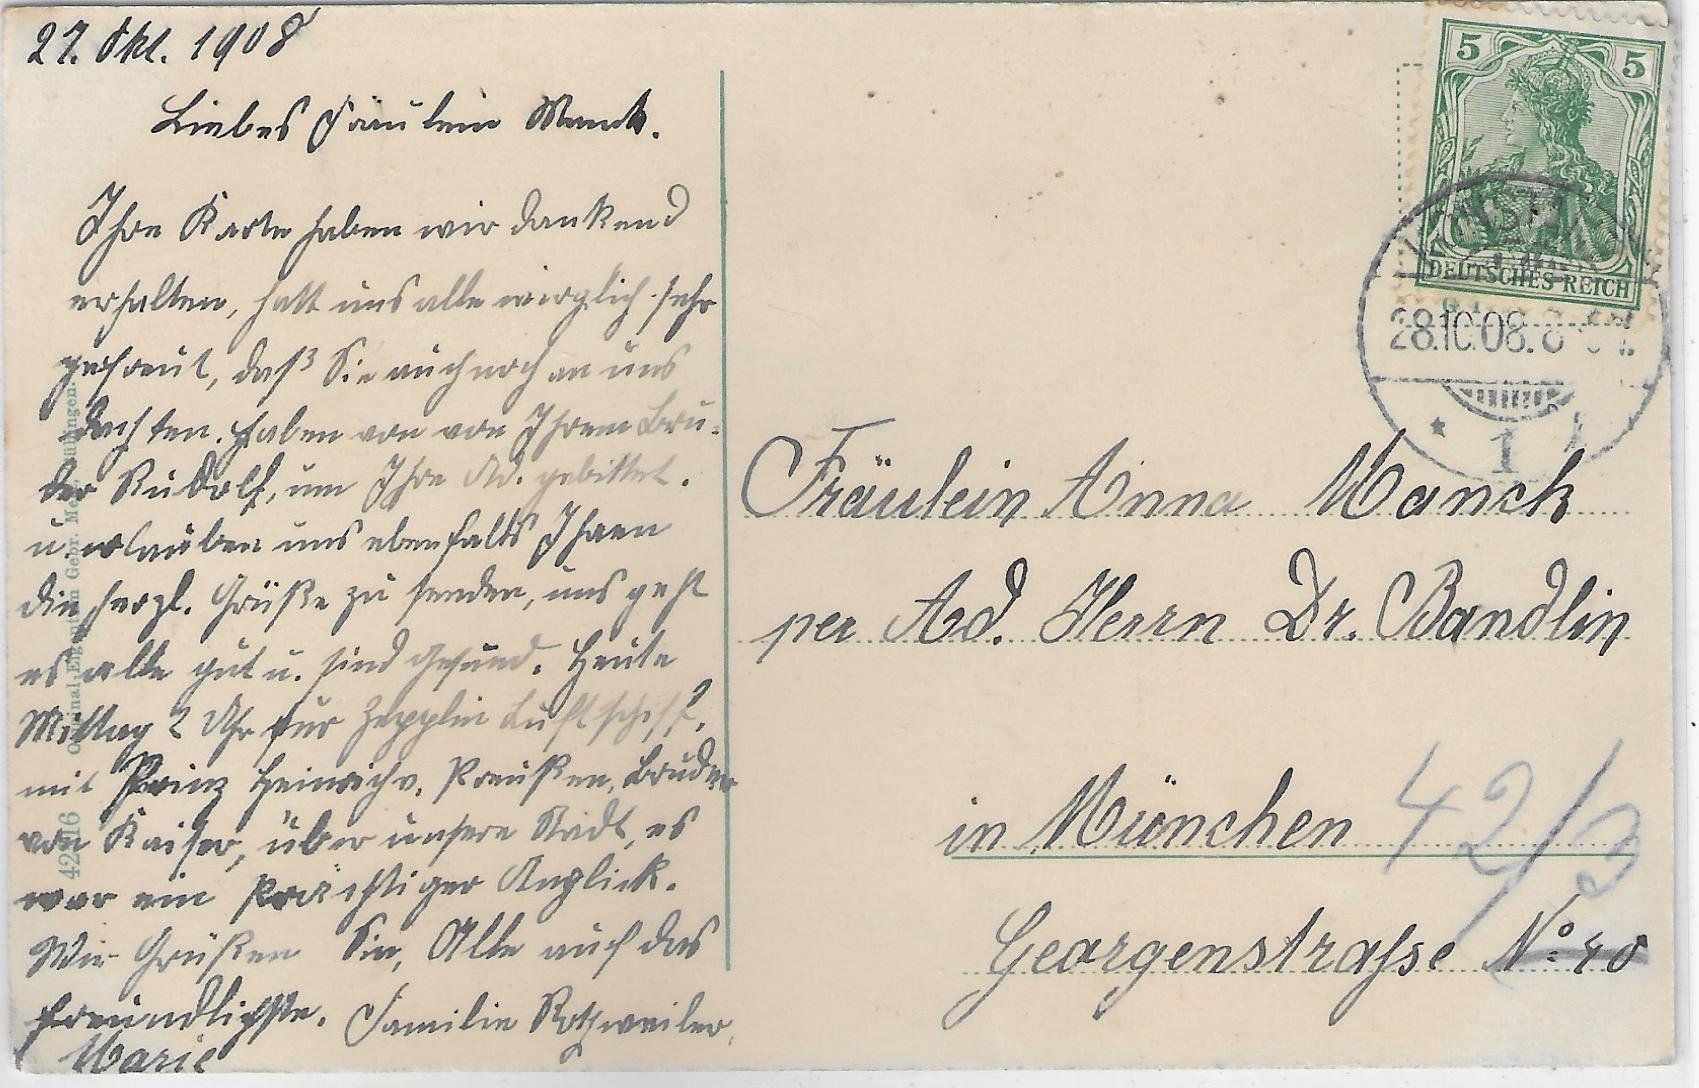 27. Okt. 1908
Liebes Fräulein Manck.
Ihre Karte haben wir dankend
erhalten, hatt uns alle wirglich sehr
gefreut, daß Sie auch noch an uns
dachten. Haben von von Ihrem Bru-
der Rudolf, um Ihre Ad. gebittet.
u. erlauben uns ebenfalls Ihnen
die herzl. Grüße zu senden, uns geht
es alle gut u. sind Gesund. Heute
Mittag 2 Uhr fur Zepplin Luftschiff,
mit Prinz Heinrich v. Preußen, Bruder
von Kaiser, über unsere Stadt, es
war ein Prächtiger Anglick.
Wir Grüßen Sie, Alle auf das
freundlichste. Familie Rothweiler,
Marie
42 16 Original-Eigentum Gebr. Me
5 5
DEUTSCHES REICH
28.10.08. 8
* 1
Fräulein Anna Manck
per Ad. Herrn Dr. Bandlin
in München 42/3
Georgenstrasse No. 40